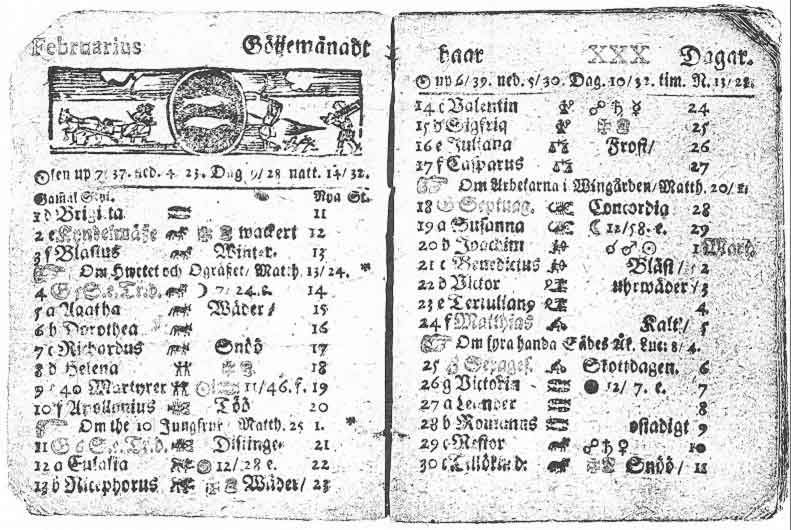 Februarius Göijemånadt
Solen up 7/ 37. ned. 4 23. Dag 9/28 natt. 14/32.
Gamal Styl. Nya St.
1 d Brigitta 11
2 e Kyndelmässe wackert 12
3 f Blasius Winter. 13
Om Hwetet och Ogräset/ Matth. 13/24.
4 G 5 S. e. Tr. d. 7/24. f. 14
5 a Agatha Wäder/ 15
6 b Dorothea 16
7 c Richardus Snöö 17
8 d Helena 18
9 e 40 Martyrer 11/46. f. 19
10 f Apollonius Töö 20
Om the 10 Jungfrur Matth. 25 1.
11 G 6 S. e. Tr. d. Distinge 21
12 a Eulalia 12/28 e. 22
13 b Nicephorus Wäder/ 23
haar XXX Dagar.
up 6/39. ned. 5/30. Dag. 10/32. tim. N. 13/28.
14 c Valentin ☍ ♄ ☿ 24
15 d Sigfrid 25
16 e Juliana Frost/ 26
17 f Casparus 27
Om Arbetarna i Wingården/ Matth. 20/1.
18 G Septuag. Concordia 28
19 a Susanna ☾ 12/58. e. 29
20 b Joachim ☌ ♂ ☉ 1 Mart.
21 c Benedictus Blåst/ 2
22 d Victor uhrwäder/ 3
23 e Tertuliang 4
24 f Matthias Kalt/ 5
Om fyra handa Sädes Åk. Luc: 8/4.
25 G Sexages. Skottdagen. 6
26 g Victorin ● 12/ 7. e. 7
27 a Leander 8
28 b Romanus ostadigt 9
29 c Nestor ☍ ♄ ♀ 10
30 c Tillökn d: Snöö/ 11